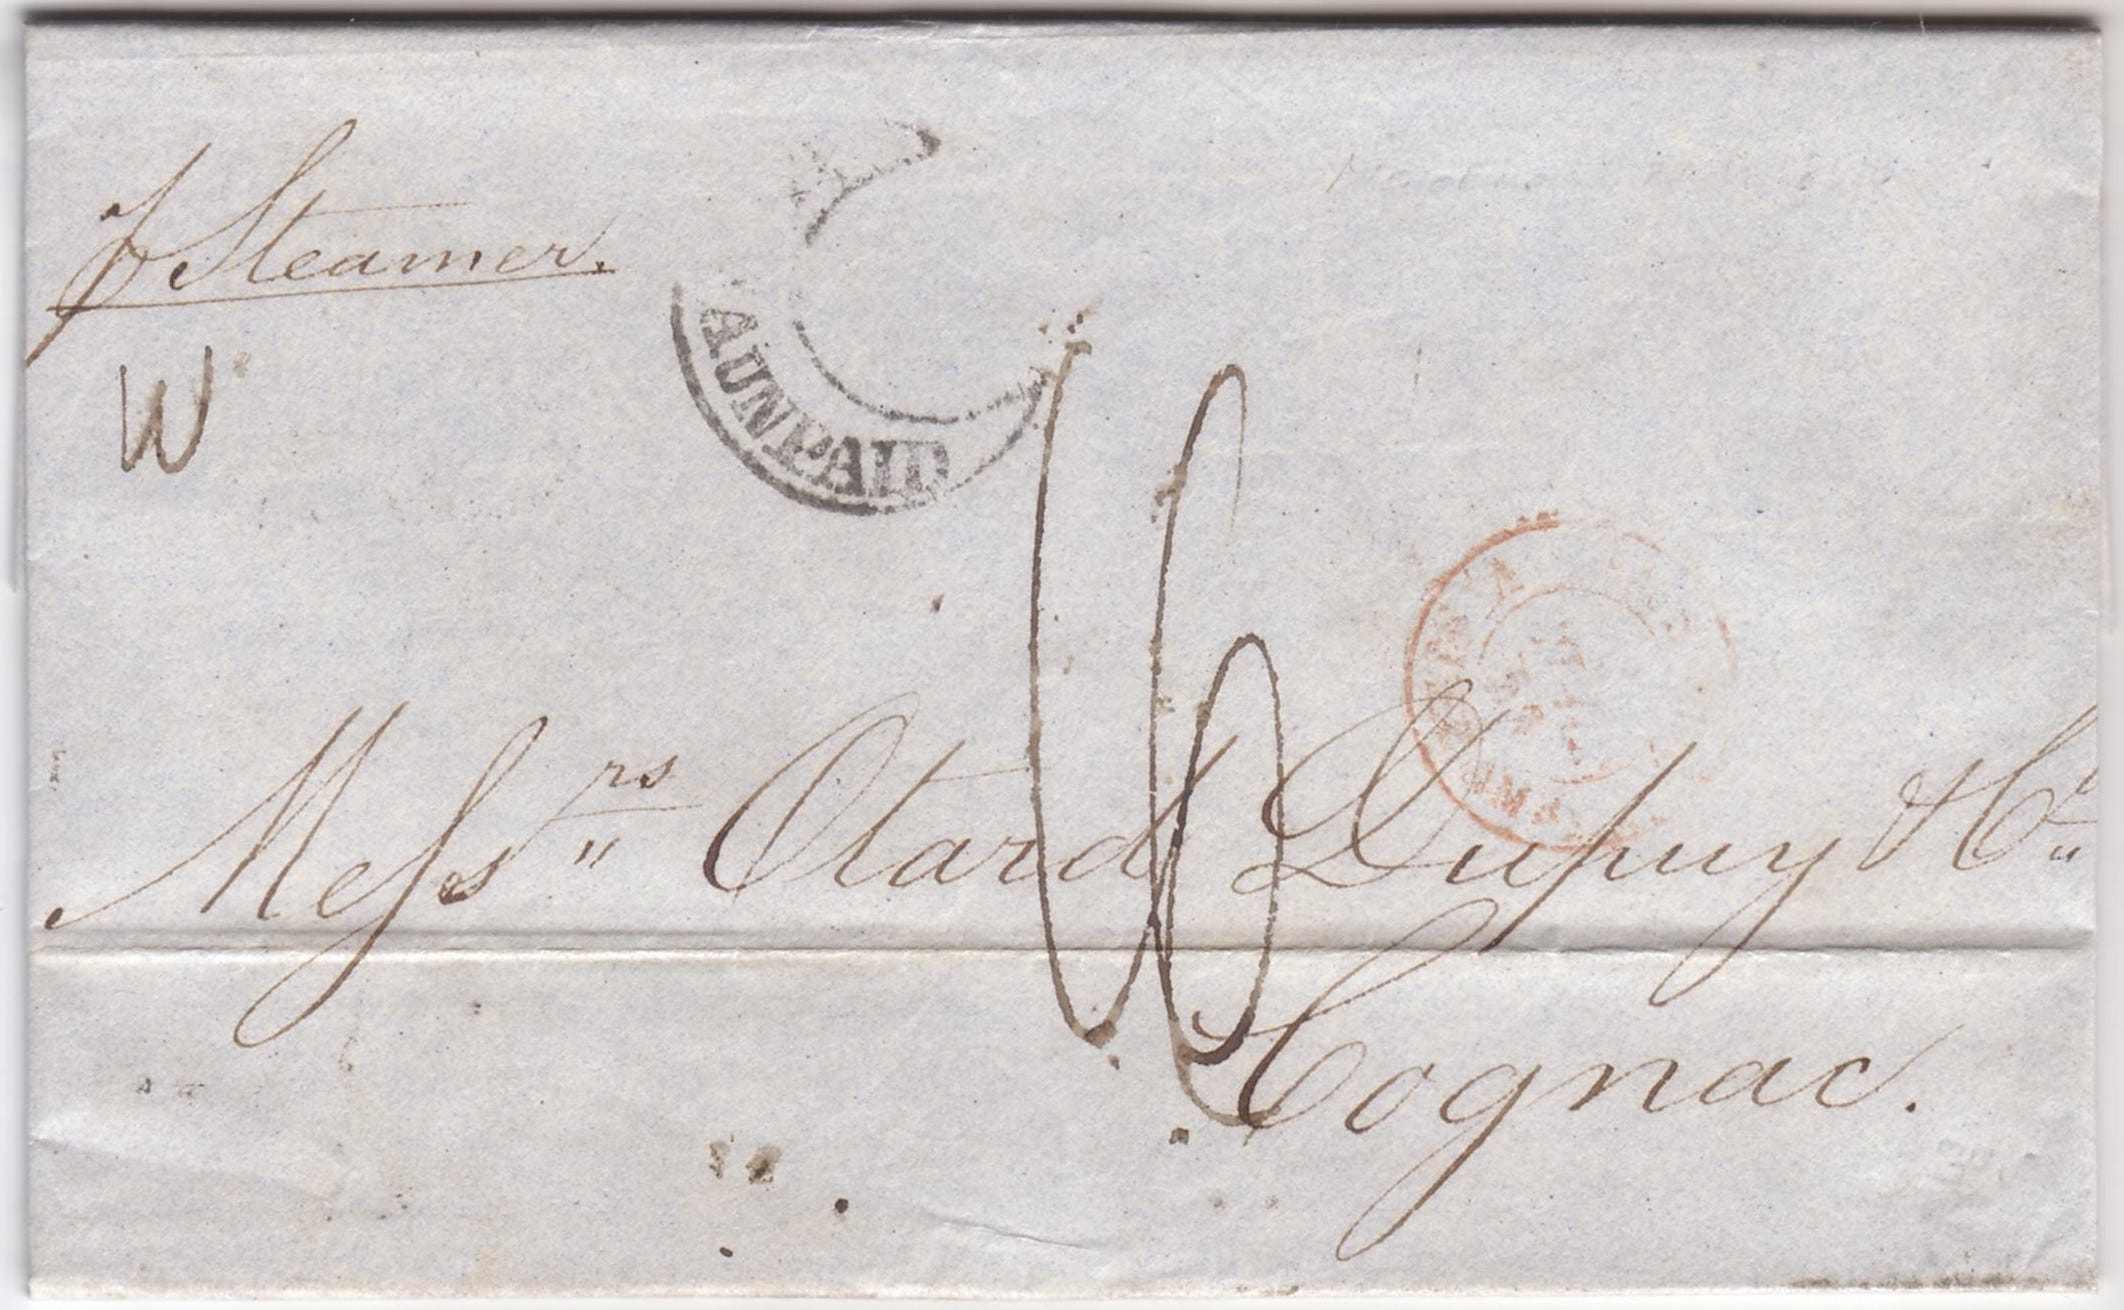 p Steamer.
W
A UNPAID
16
Mess rs " Otard Dupuy & Co "
Cognac.